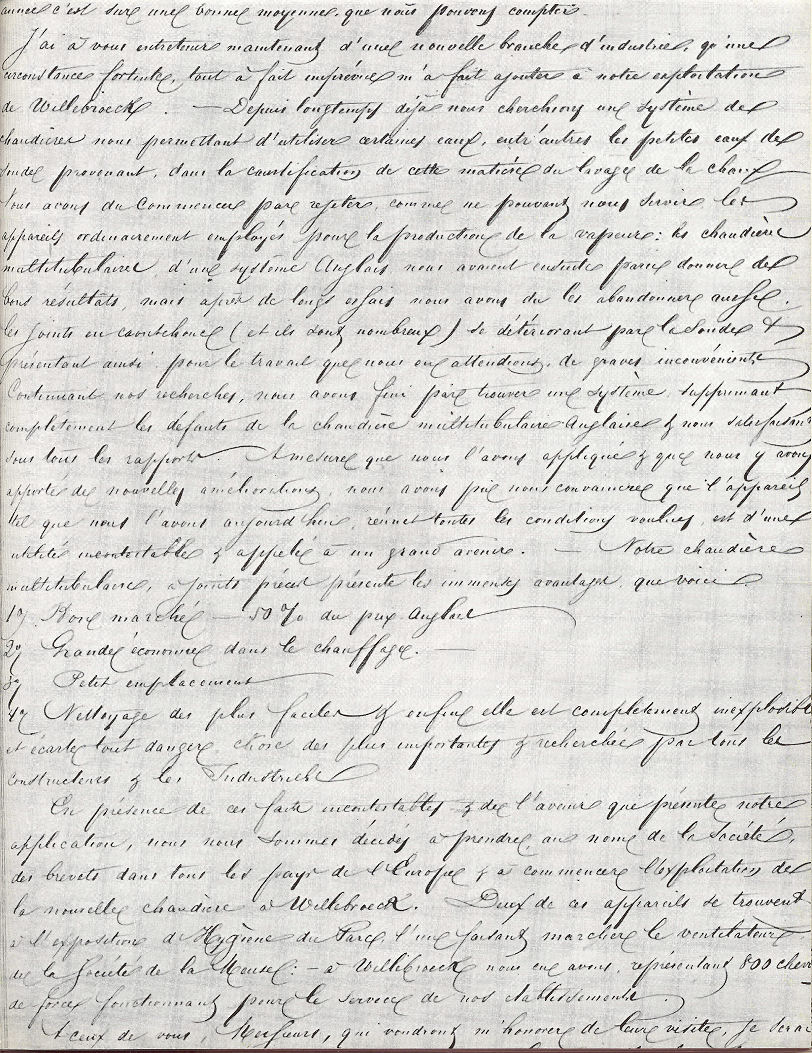 année c'est sur une bonne moyenne, que nous pouvons compter.
J'ai à vous entretenir maintenant d'une nouvelle branche d'industrie, qu'une
circonstance fortuite, tout à fait imprévue m'a fait ajouter à notre exploitation
de Willebroeck. — Depuis longtemps déjà nous cherchions un système de
chaudières nous permettant d'utiliser certaines eaux, entr'autres les petites eaux de
soude provenant, dans la caustification de cette matière du lavage de la chaux
Nous avons du commencer par rejeter, comme ne pouvant nous servir les
appareils ordinairement employés pour la production de la vapeur: les chaudières
multitubulaires, d'un système Anglais, nous avaient ensuite paru donner de
bons résultats, mais après de longs essais nous avons du les abandonner aussi.
les joints en caoutchouc (et ils sont nombreux) se détériorant par la Soude &
présentant ainsi, pour le travail que nous en attendions, de graves inconvénients
Continuant nos recherches, nous avons fini par trouver un système, supprimant
complètement les défauts de la chaudière multitubulaire Anglaise & nous satisfaisant
sous tous les rapports A mesure que nous l'avons appliqué & que nous y avons
apporté de nouvelles améliorations, nous avons pu nous convaincre que l'appareil
tel que nous l'avons aujourd'hui, réunit toutes les conditions voulues, est d'une
utilité incontestable & appelé à un grand avenir. — Notre chaudière
multitubulaire, à joints précis présente les immenses avantages, que voici
1°/. Bon marché — 50 % du prix Anglais
2°/ Grande économie dans le chauffage. —
3°/ Petit emplacement
4°/ Nettoyage des plus faciles & enfin elle est complètement inexplosible
et écarte tout danger, chose des plus importantes & recherchée par tous les
constructeurs & les Industriels
En présence de ces faits incontestables & de l'avenir que présente notre
application, nous nous sommes décidés à prendre, au nom de la Société,
des brevets dans tous les pays de l'Europe & à commencer l'exploitation de
la nouvelle chaudière à Willebroeck. Deux de ces appareils se trouvent
à l'exposition d'Hygiène du Parc, l'un faisant marcher le ventilateur
de la Société de la Meuse: - à Willebroeck nous en avons, représentant 800 chev
de force fonctionnant pour le service de nos établissements.
A ceux de vous, Messieurs, qui voudront m'honorer de leur visite, je serai